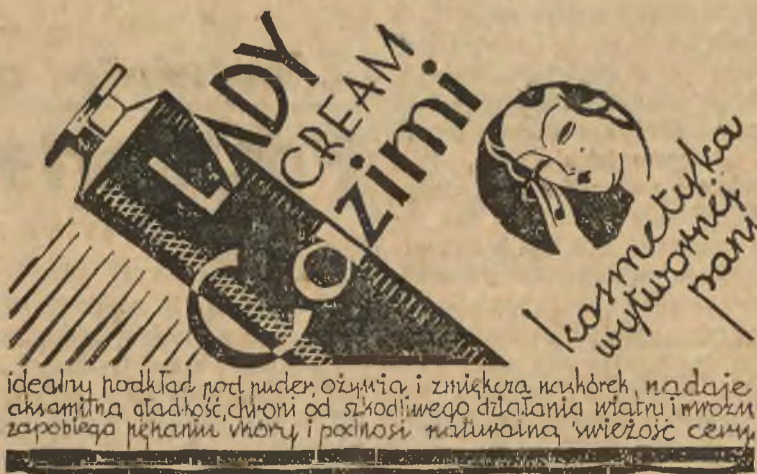 LADY
CREAM
Cozimi
kosmetyka
wytwornej
pani
idealny podkład pod puder, ożywia i zmiękcza naskórek, nadaje
aksamitną gładkość, chroni od szkodliwego działania wiatru i mrozu
zapobiega pękaniu skóry i podnosi naturalną świeżość cery.